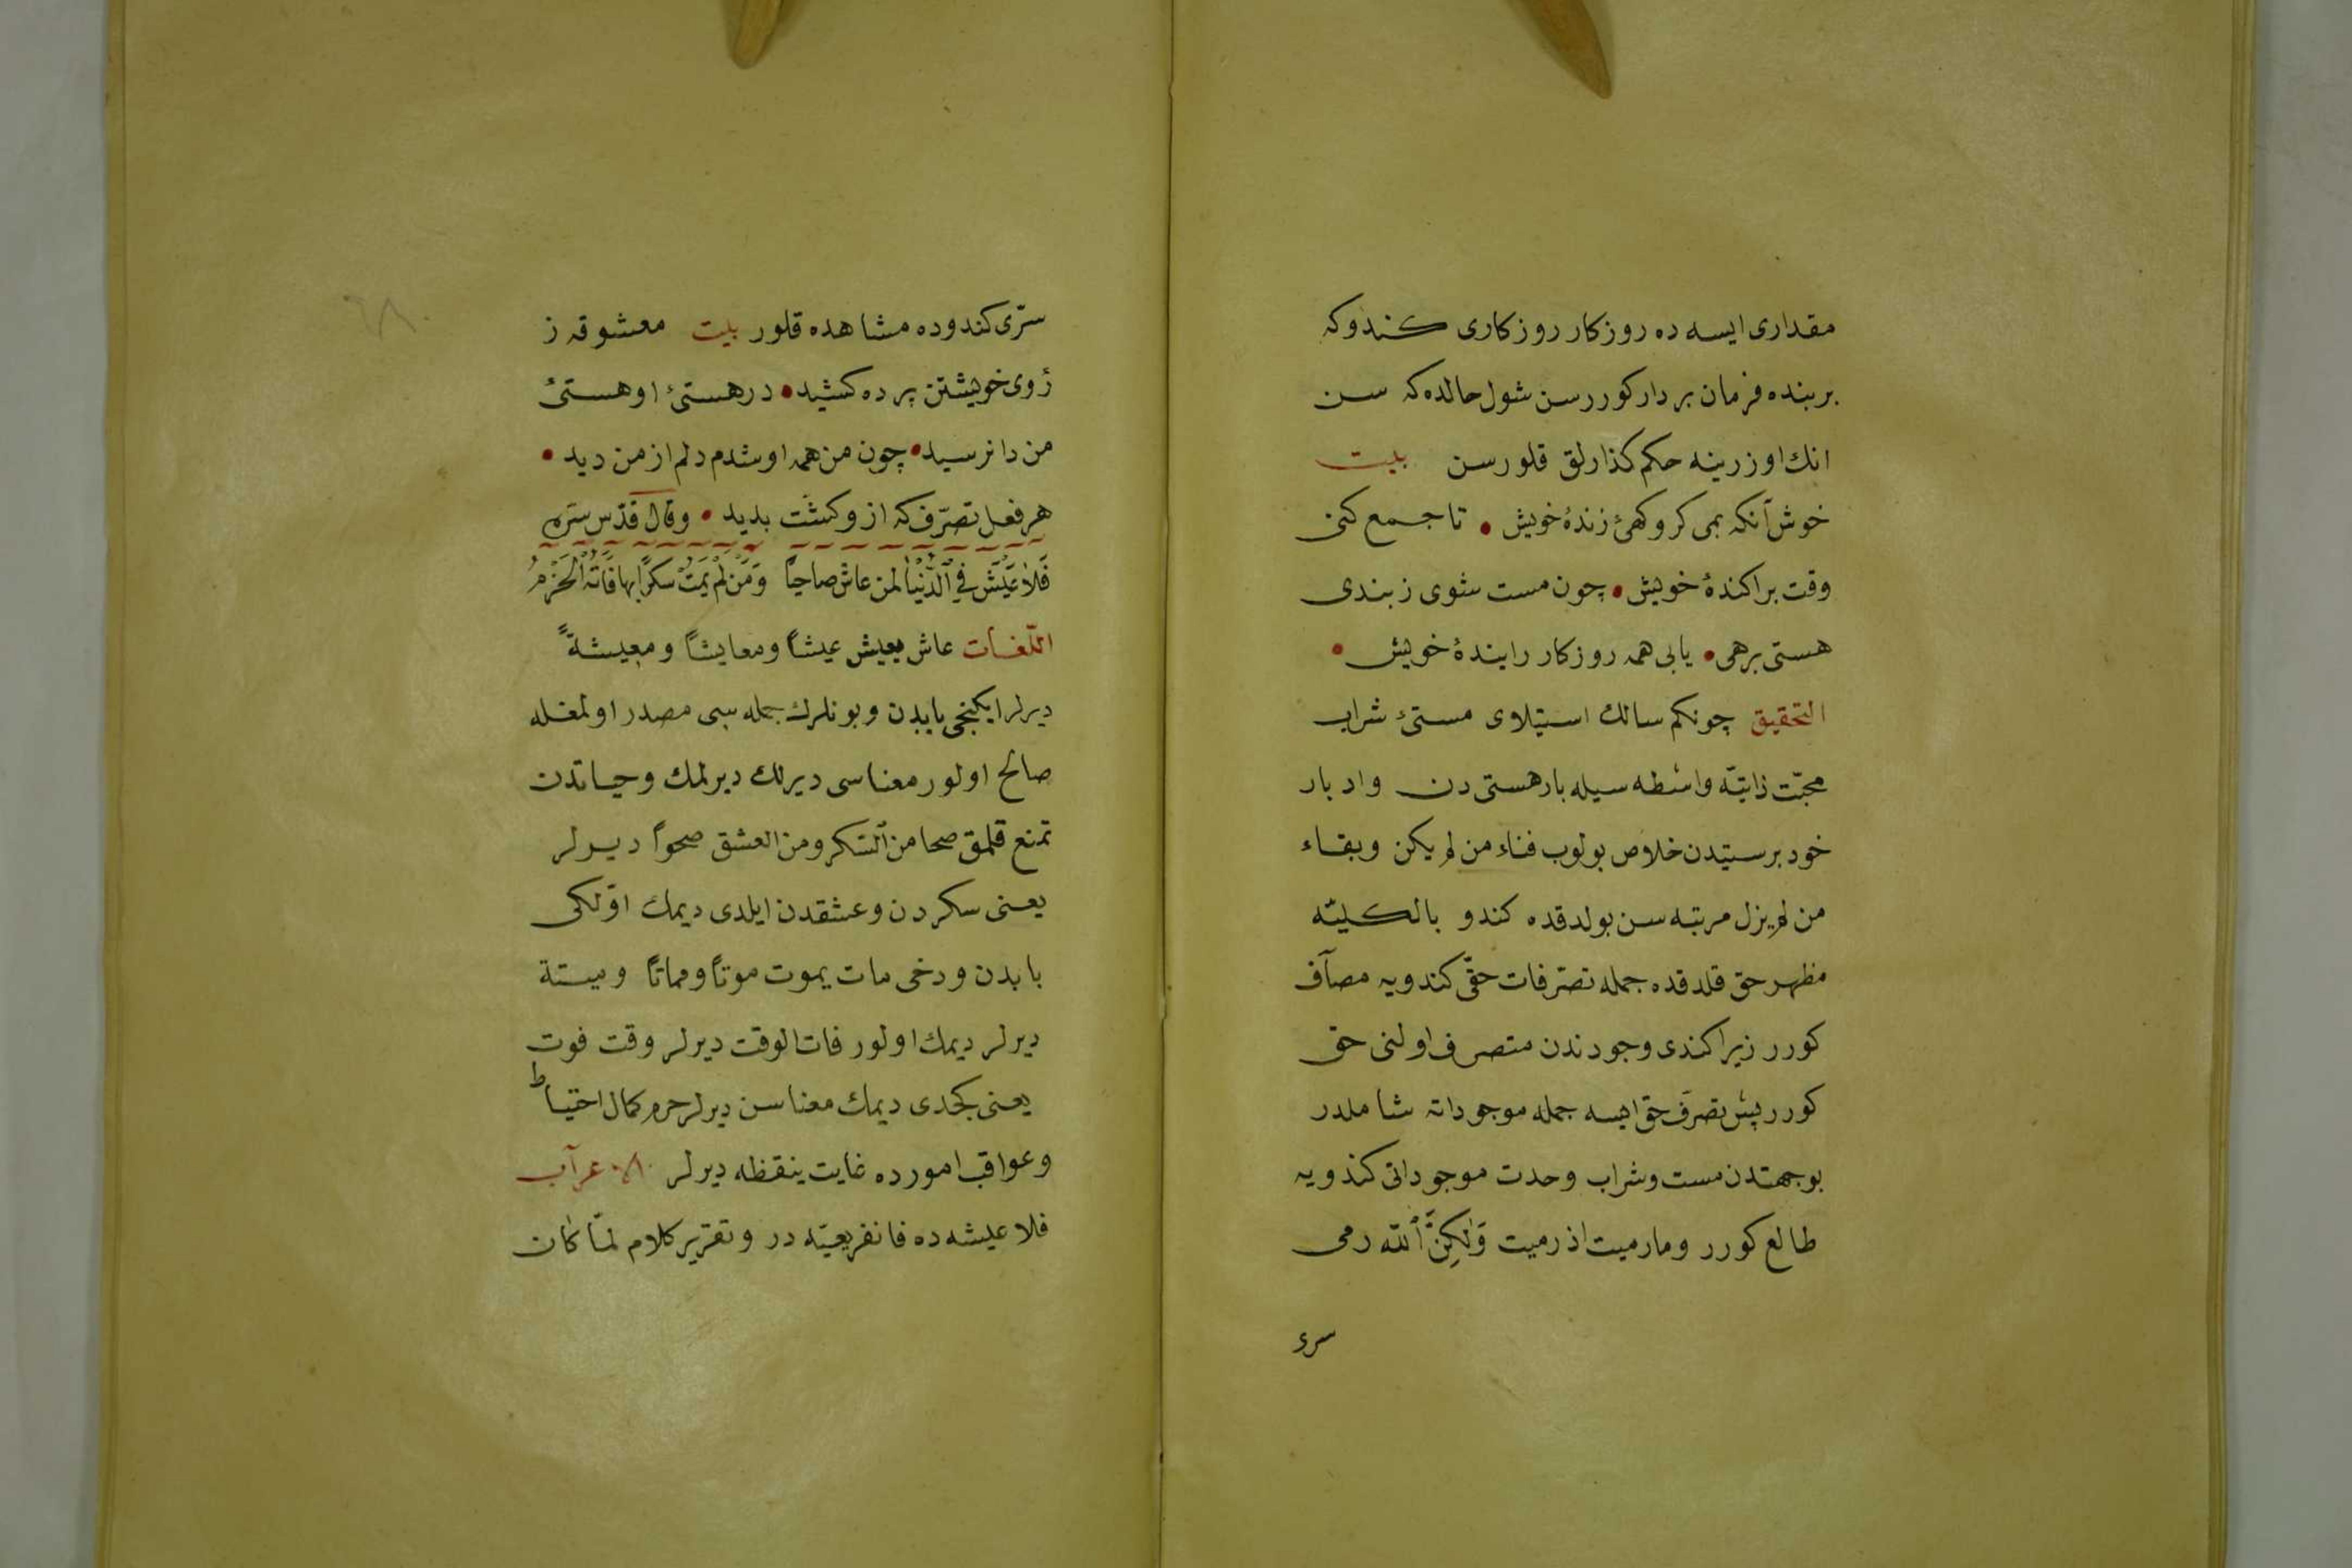 مقداری ایسه ده روزکار روزکاری کندوکه
بر بنده فرمان بردار کوررسن شول حالده که سن
انك اوزرینه حکم کذارلق قلورسن بیت
خوش آنکه بمی کروکهئ زندهٔ خویش • تا جمع کنی
وقت پراکندهٔ خویش • چون مست شوی ز بندی
هستی برهی • یابی همه روزکار را بندهٔ خویش •
التحقیق چونکم سالك استیلای مستئ شراب
محبّت ذاتیّه واسطه سیله بار هستی دن وادبار
خود پرستیدن خلاص بولوب فناء من لم یکن وبقاء
من لم یزل مرتبه سن بولدقده کندو بالکلیّه
مظهر حق قلدقده جمله تصرّفات حقّی کندویه مضاف
کورر زیرا کندی وجودندن متصرف اولنی حق
کورر پس تصرّف حق ایسه جمله موجوداته شاملدر
بو جهتدن مست وشراب وحدت موجوداتی کندویه
طالع کورر ومارمیت اذ رمیت وَلٰكِنَّ ٱللّٰه رمی
سری
سرّی کندوده مشاهده قلور بیت معشوقه ز
رُوی خویشتن پرده کشید • در هستئ او هستئ
من دانرسید • چون من همه او شدم دلم از من دید •
هر فعل تصرّف که ازو کشت بدید • وقال قدّس سرّه
فَلَا عَيْشَ فِي ٱلدُّنْيَا لمن عاش صاحيًا وَمَنْ لَمْ يَمُتْ سُكْرًا بها فَاتَهُ الْحَزْمُ
اللّغات عاش یعیش عیشاً ومعایشاً ومعیشةً
دیرلر ایکنجی بابدن وبونلرك جمله سی مصدر اولمغله
صالح اولور معناسی دیرلك دیرلمك وحیاتدن
تمتع قلمق صحا من ٱلسّکر ومن العشق صحواً دیرلر
یعنی سکردن وعشقدن ایلدی دیمك اوّلکی
بابدن ودخی مات یموت موتاً ومماتاً ومیتة
دیرلر دیمك اولور فات الوقت دیرلر وقت فوت
یعنی کجدی دیمك معناسن دیرلر حزم کمال احتیاط
وعواقب امورده غایت ینقظه دیرلر الاعراب
فلا عیشه ده فا تفریعیّه در وتقریر کلام لمّا کان
٦٨